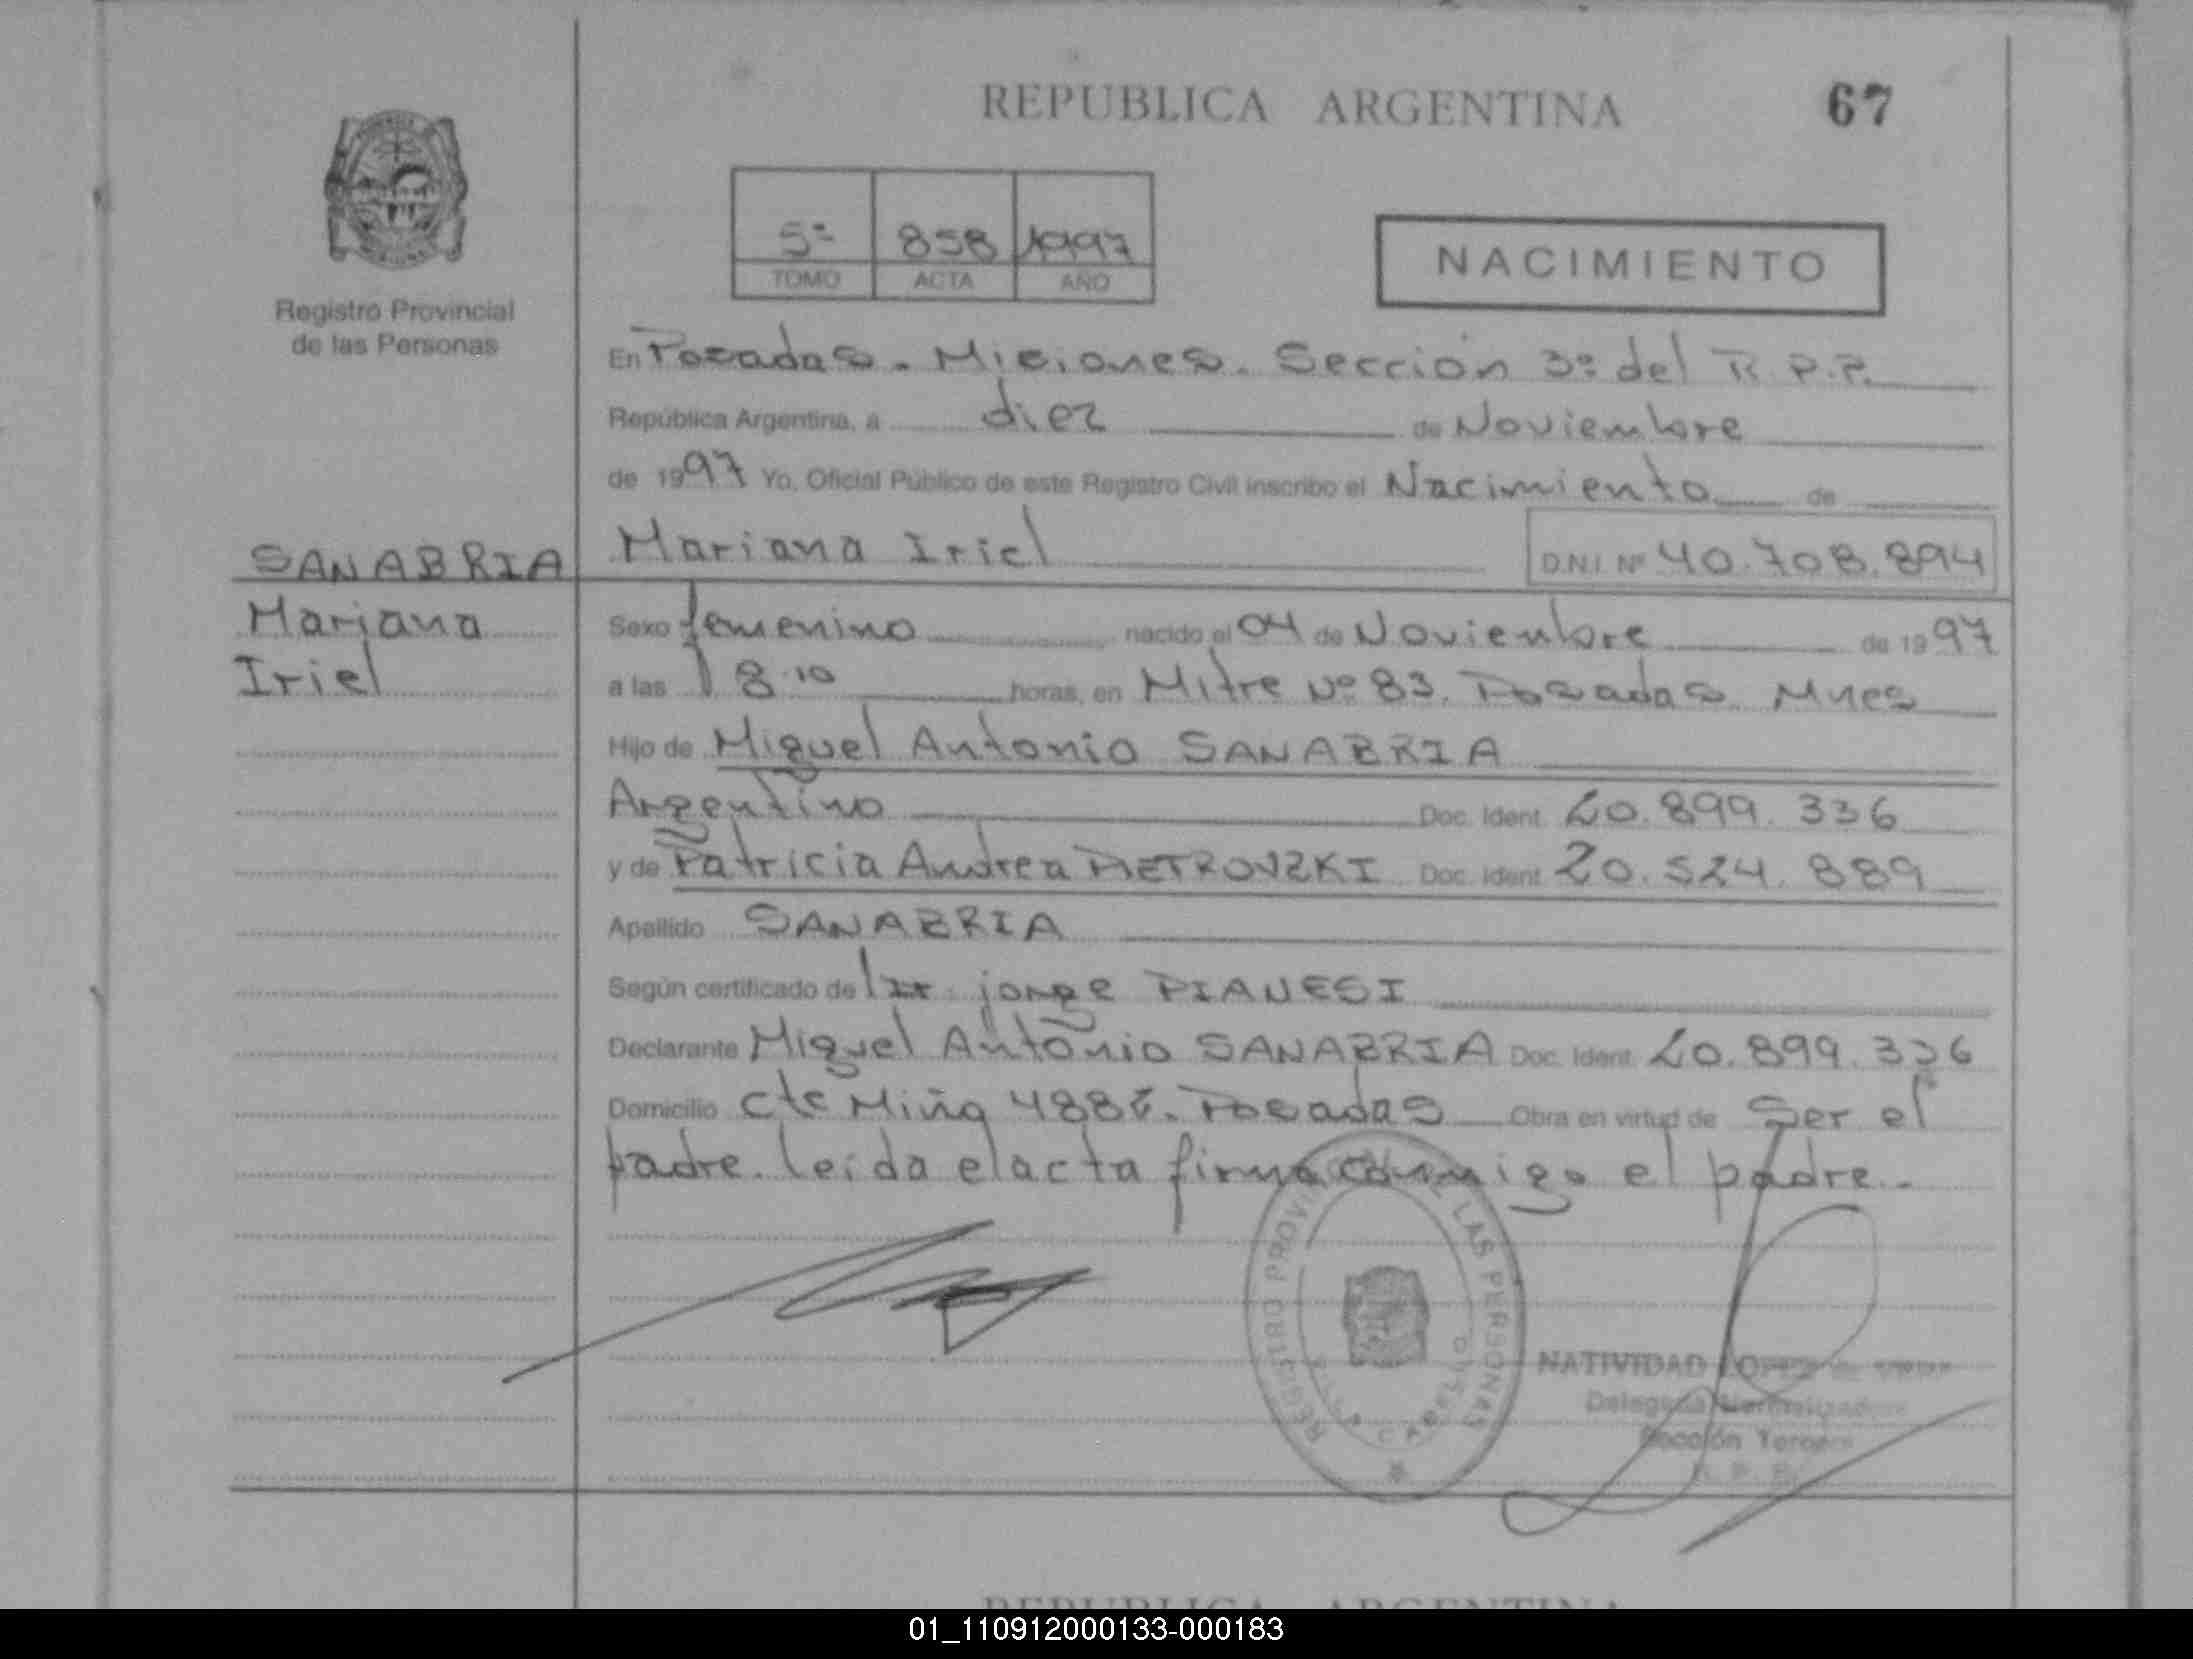 REPUBLICA ARGENTINA
67
5º 858 1997
TOMO ACTA AÑO
NACIMIENTO
Registro Provincial
de las Personas
En Posadas. Misiones. Sección 3º del R.P.P.
República Argentina, a diez de Noviembre
de 1997 Yo, Oficial Público de este Registro Civil inscribo el Nacimiento de
SANABRIA
Mariana
Iriel
Mariana Iriel
D.N.I. Nº 40.708.894
Sexo femenino nacido el 04 de Noviembre de 1997
a las 18.10 horas, en Mitre Nº 83. Posadas. Mnes
Hijo de Miguel Antonio SANABRIA
Argentino Doc. Ident. 20.899.336
y de Patricia Andrea PIETROVZKI Doc. Ident. 20.524.889
Apellido SANABRIA
Según certificado de Dr. jorge PIANESI
Declarante Miguel Antonio SANABRIA Doc. Ident. 20.899.336
Domicilio Cte Miño Posadas Obra en virtud de Ser el
padre. leída el acta firma conmigo el padre.
REGISTRO PROVINCIAL DE LAS PERSONAS
NATIVIDAD LOPEZ
Delegada Normalizadora
Sección Tercera
R. P. P.
REPUBLICA ARGENTINA
01_110912000133-000183